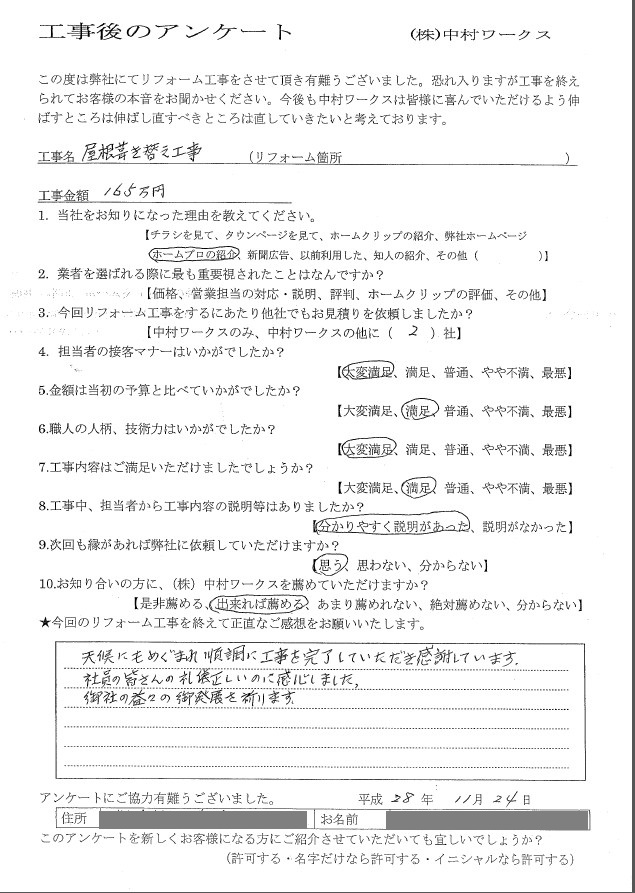 工事後のアンケート　　　　　(株)中村ワークス
この度は弊社にてリフォーム工事をさせて頂き有難うございました。恐れ入りますが工事を終え
られてお客様の本音をお聞かせください。今後も中村ワークスは皆様に喜んでいただけるよう伸
ばすところは伸ばし直すべきところは直していきたいと考えております。
工事名 屋根葺き替え工事　　(リフォーム箇所　　　　　　　　　　)
工事金額 165万円
1. 当社をお知りになった理由を教えてください。
【チラシを見て、タウンページを見て、ホームクリップの紹介、弊社ホームページ
ホームプロの紹介、新聞広告、以前利用した、知人の紹介、その他（　　　　）】
2. 業者を選ばれる際に最も重要視されたことはなんですか？
【価格、営業担当の対応・説明、評判、ホームクリップの評価、その他】
3. 今回リフォーム工事をするにあたり他社でもお見積りを依頼しましたか？
【中村ワークスのみ、中村ワークスの他に（ 2 ）社】
4. 担当者の接客マナーはいかがでしたか？
【大変満足、満足、普通、やや不満、最悪】
5.金額は当初の予算と比べていかがでしたか？
【大変満足、満足、普通、やや不満、最悪】
6.職人の人柄、技術力はいかがでしたか？
【大変満足、満足、普通、やや不満、最悪】
7.工事内容はご満足いただけましたでしょうか？
【大変満足、満足、普通、やや不満、最悪】
8.工事中、担当者から工事内容の説明等はありましたか？
【分かりやすく説明があった、説明がなかった】
9.次回も縁があれば弊社に依頼していただけますか？
【思う、思わない、分からない】
10.お知り合いの方に、（株）中村ワークスを薦めていただけますか？
【是非薦める、出来れば薦める、あまり薦めれない、絶対薦めない、分からない】
★今回のリフォーム工事を終えて正直なご感想をお願いいたします。
天候にもめぐまれ順調に工事を完了していただき感謝しています.
社員の皆さんの礼儀正しいのに感心しました,
御社の益々の御発展を祈ります
アンケートにご協力有難うございました。　　　平成 28 年 11月 24日
住所　　　　　　　お名前
このアンケートを新しくお客様になる方にご紹介させていただいても宜しいでしょうか？
（許可する・名字だけなら許可する・イニシャルなら許可する）